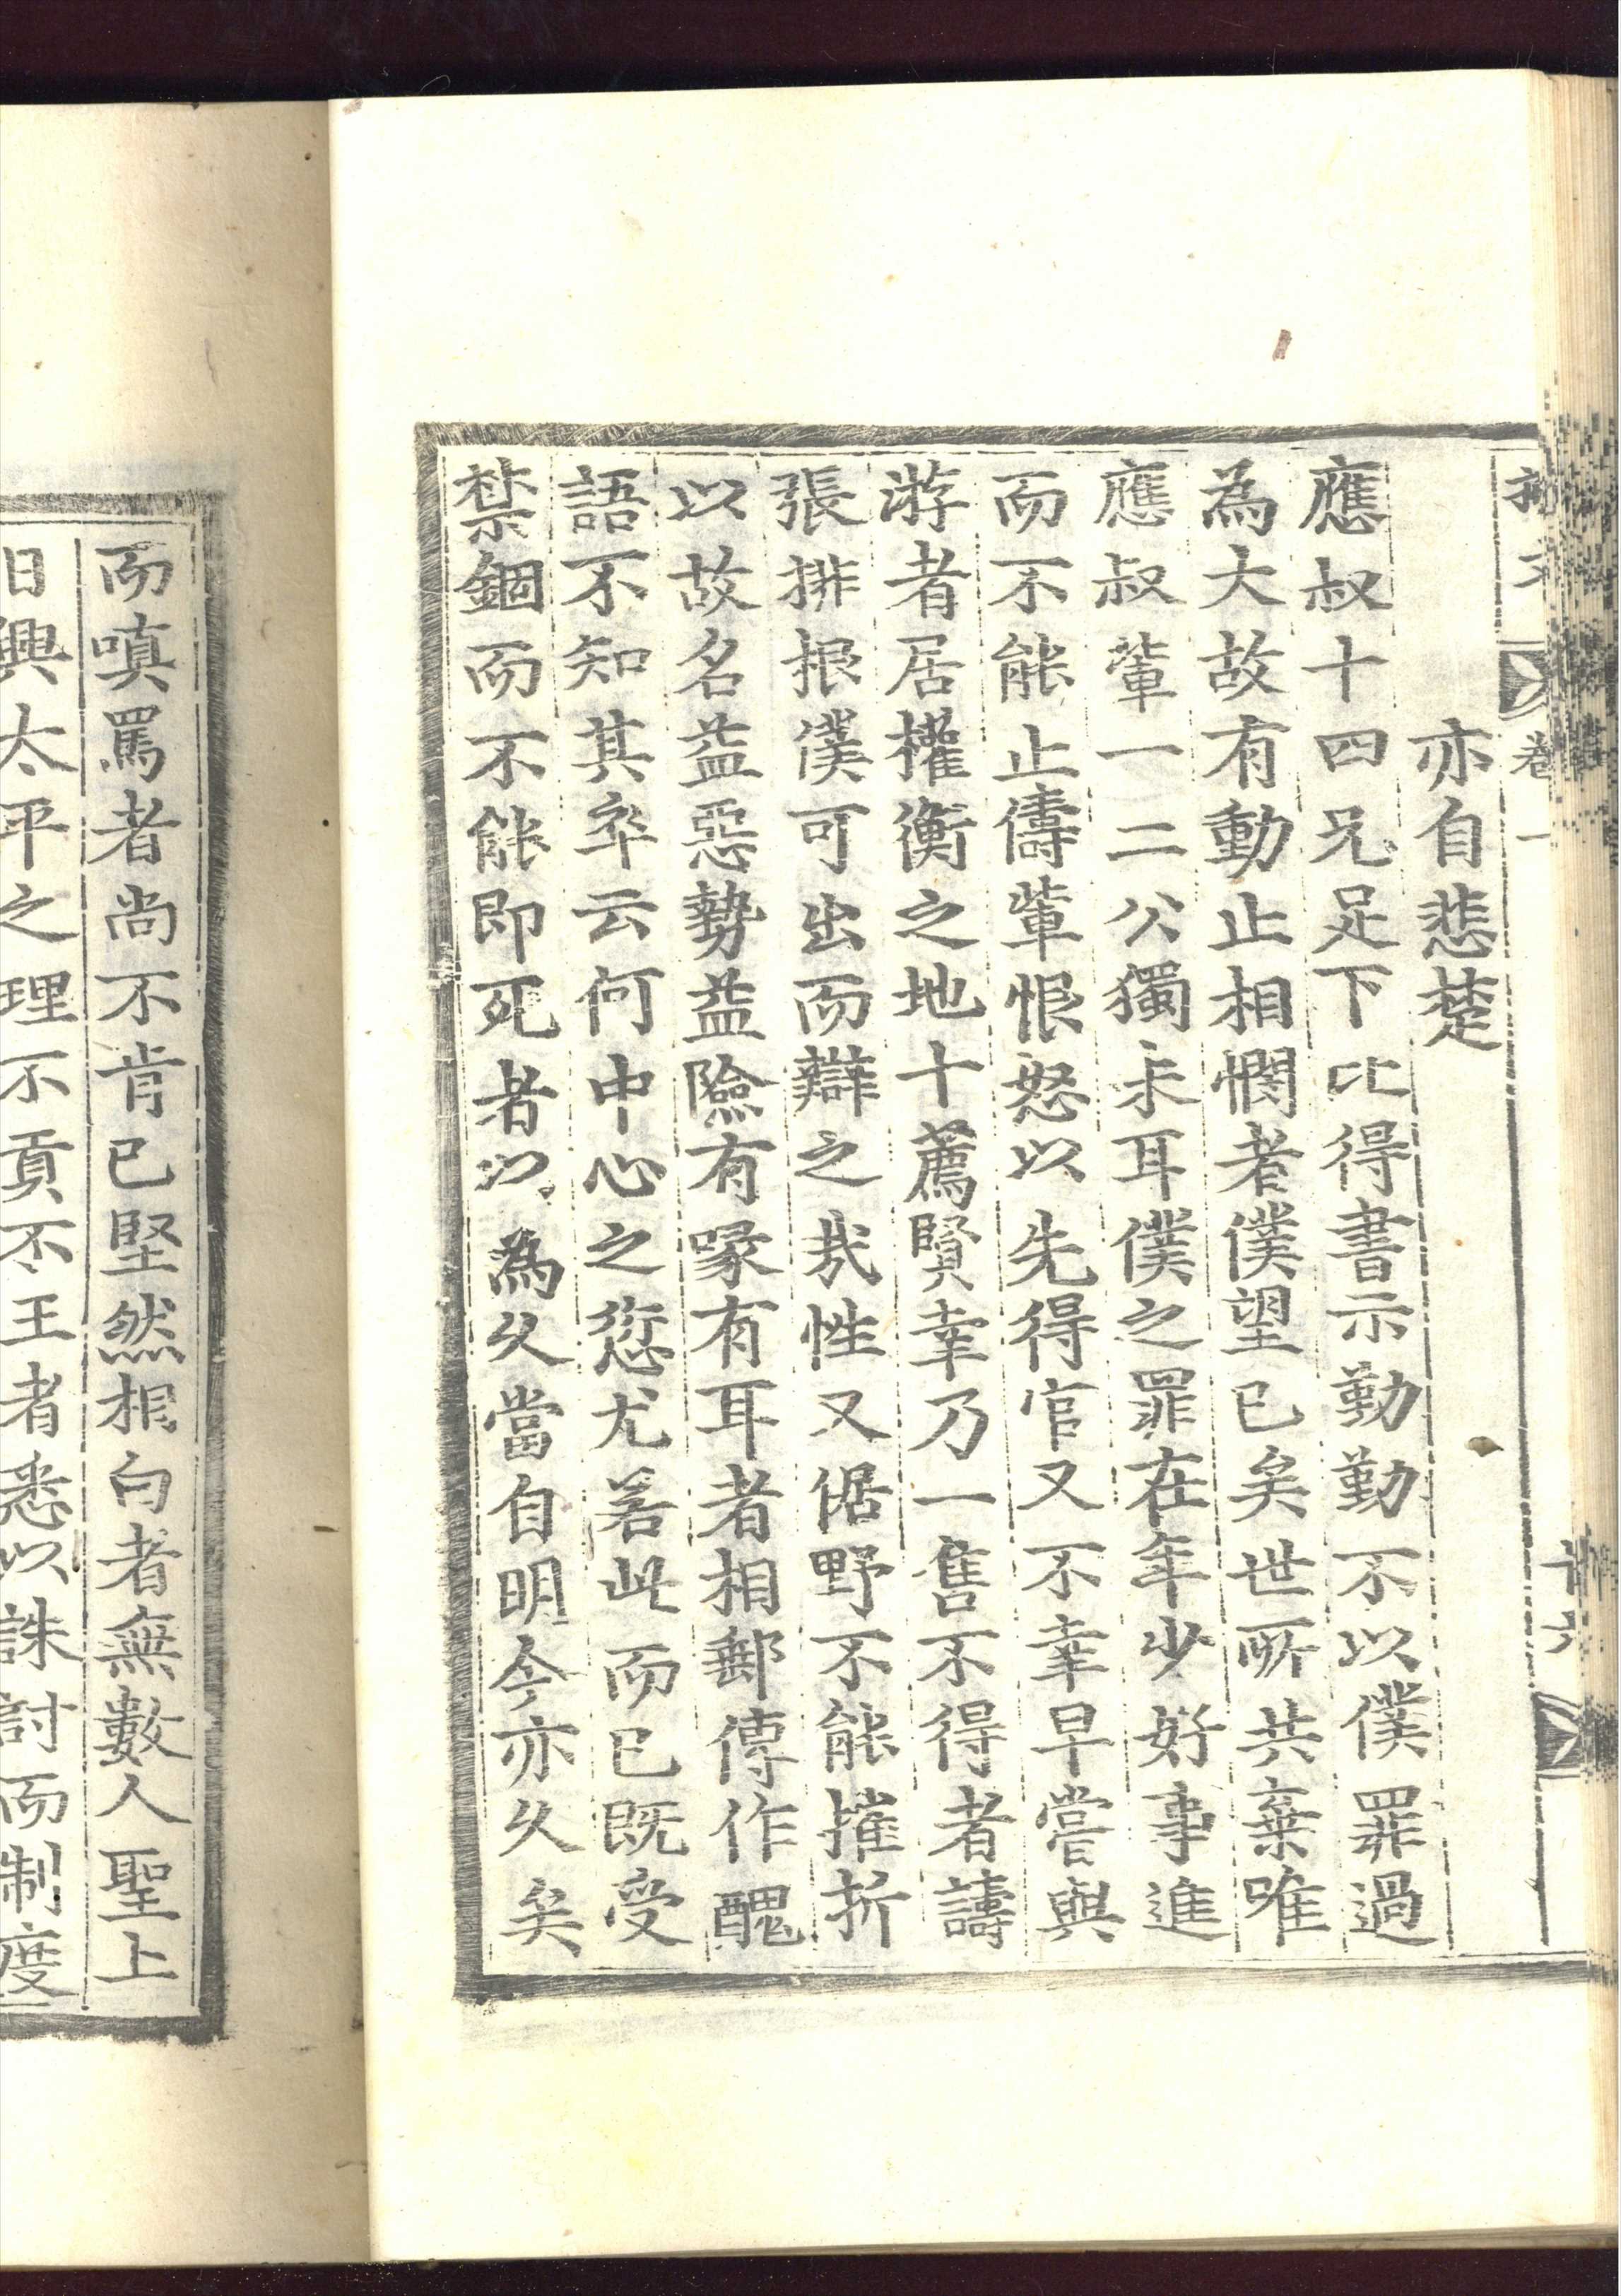 卷一
亦自悲楚
應叔十四兄足下比得書示勤勤不以僕罪過
為大故有動止相憫者僕望已矣世所共棄唯
應叔輩一二公獨未耳僕之罪在年少好事進
而不能止儔輩恨怒以先得官又不幸早嘗與
游者居權衡之地十薦賢幸乃一售不得者譸
張排根僕可出而辯之哉性又倨野不能摧折
以故名益惡勢益險有喙有耳者相郵傳作醜
語不知其卒云何中心之愆尤若此而已既受
禁錮而不能即死者以為久當自明今亦久矣
而嗔罵者尚不肯已堅然相白者無數人聖上
日興太平之理不貢不王者悉以誅討而制度